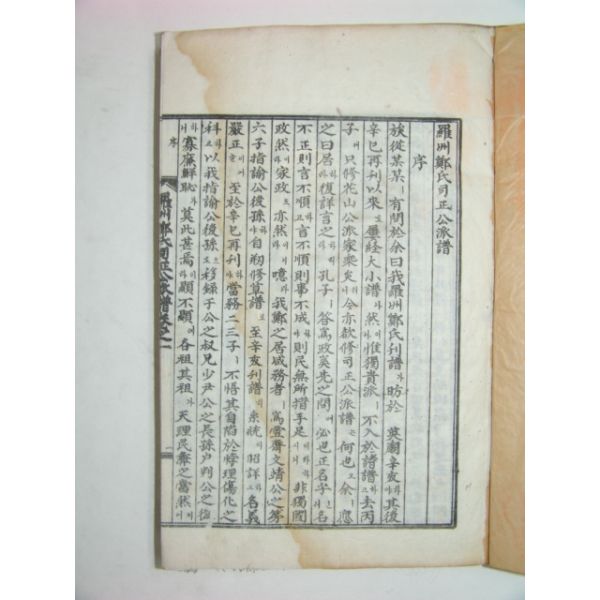 羅州鄭氏司正公派譜
序
族從某某ㅣ有問於余曰我羅州鄭氏刊譜가昉於 英廟辛亥하야其後
辛巳再刊以來로屢經大小譜나然이나惟獨貴派ㅣ不入於譜하고去丙
子에只修花山公派家乘矣러니今亦欲修司正公派譜는何也오余ㅣ應
之曰居하라復詳言之하리라孔子ㅣ答爲政奚先之問에必也正名乎신저名
不正則言不順하고言不順則事不成하야則民無所措手足이라하시니非獨國
政然이라家政도亦然이니噫라我鄭之居咸務者ㅣ爲雪齋文靖公之第
六子指諭公後孫하야自初修草譜로至辛亥刊譜히系統이昭詳하고名義
嚴正이러니至於辛巳再刊하야當務二三子ㅣ不悟其自陷於悖理傷化之
科하고以我指諭公後孫으로移錄于公之叔兄少尹公之長孫戶判公之後
하니寡廉鮮恥가莫此甚焉이라顧不顯가各祖其祖는天理民彝之當然이어
序
羅州鄭氏司正公派譜卷之一
一